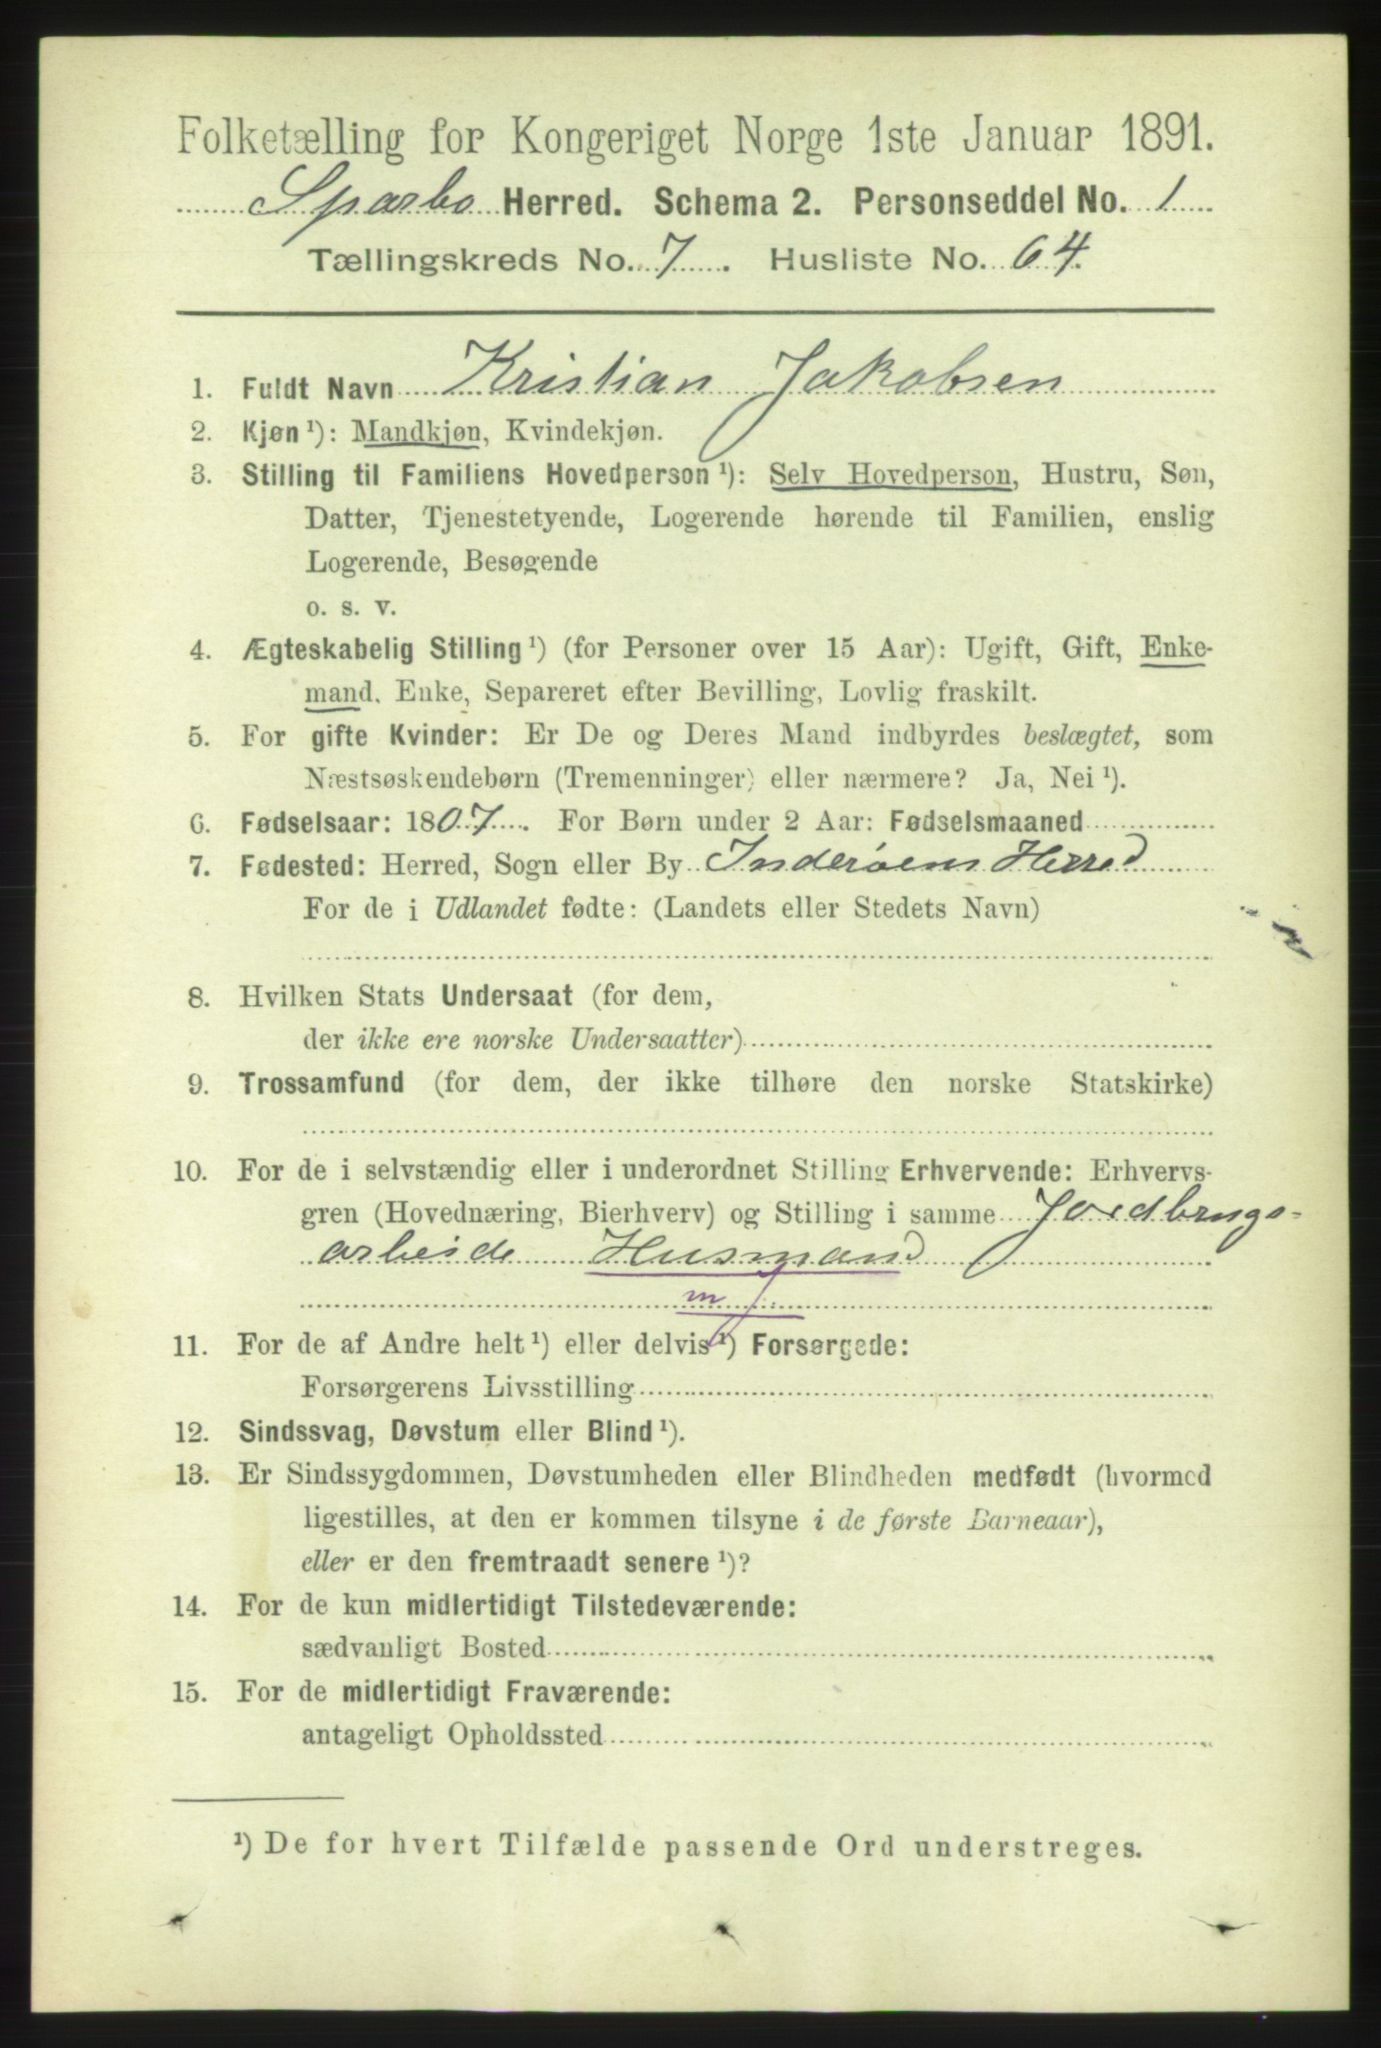 Folketælling for Kongeriget Norge 1ste Januar 1891.
Sparbo Herred. Schema 2. Personseddel No. 1
Tællingskreds No. 7. Husliste No. 64.
1. Fuldt Navn Kristian Jakobsen
2. Kjøn ¹): Mandkjøn, Kvindekjøn.
3. Stilling til Familiens Hovedperson ¹): Selv Hovedperson, Hustru, Søn,
Datter, Tjenestetyende, Logerende hørende til Familien, enslig
Logerende, Besøgende
o. s. v.
4. Ægteskabelig Stilling ¹) (for Personer over 15 Aar): Ugift, Gift, Enke-
mand, Enke, Separeret efter Bevilling, Lovlig fraskilt.
5. For gifte Kvinder: Er De og Deres Mand indbyrdes beslægtet, som
Næstsøskendebørn (Tremenninger) eller nærmere? Ja, Nei ¹).
6. Fødselsaar: 1807. For Børn under 2 Aar: Fødselsmaaned
7. Fødested: Herred, Sogn eller By Inderøens Herred
For de i Udlandet fødte: (Landets eller Stedets Navn)
8. Hvilken Stats Undersaat (for dem,
der ikke ere norske Undersaatter)
9. Trossamfund (for dem, der ikke tilhøre den norske Statskirke)
10. For de i selvstændig eller i underordnet Stilling Erhvervende: Erhvervs-
gren (Hovednæring, Bierhverv) og Stilling i samme Jordbrugs-
arbeide Husmand
m j
11. For de af Andre helt ¹) eller delvis ¹) Forsørgede:
Forsørgerens Livsstilling
12. Sindssvag, Døvstum eller Blind ¹).
13. Er Sindssygdommen, Døvstumheden eller Blindheden medfødt (hvormed
ligestilles, at den er kommen tilsyne i de første Barneaar),
eller er den fremtraadt senere ¹)?
14. For de kun midlertidigt Tilstedeværende:
sædvanligt Bosted
15. For de midlertidigt Fraværende:
antageligt Opholdssted
¹) De for hvert Tilfælde passende Ord understreges.